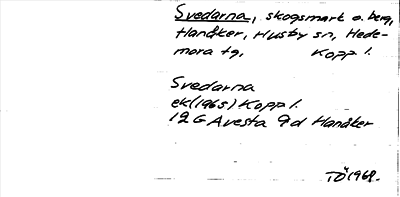 Svedarna, skogsmark o. berg,
Hanåker, Husby sn, Hede-
mora tg, Kopp l.
Svedarna
ek(1965) Kopp l.
12G Avesta 9d Hanåker
TÖ 1969.